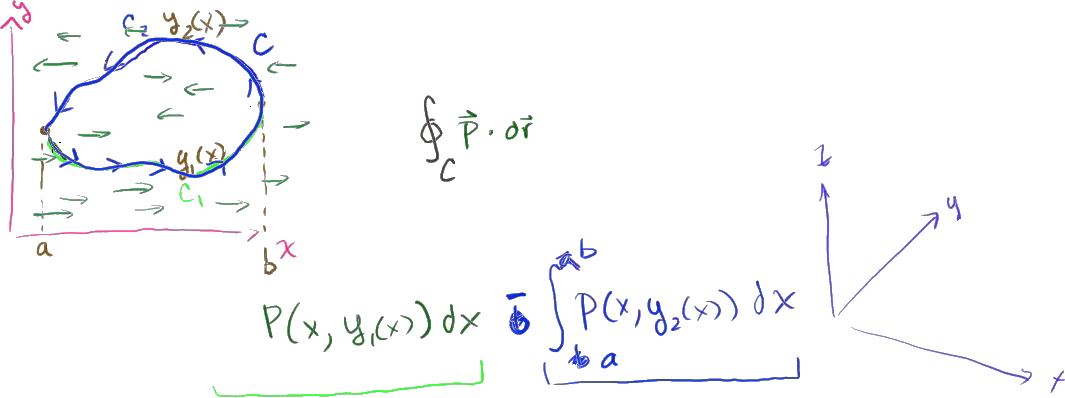 y
C₂ y₂(x)
C
y₁(x)
C₁
a
b
x
∮_C P⃗ · dr⃗
P(x, y₁(x)) dx − ∫_a^b P(x, y₂(x)) dx
z
y
x